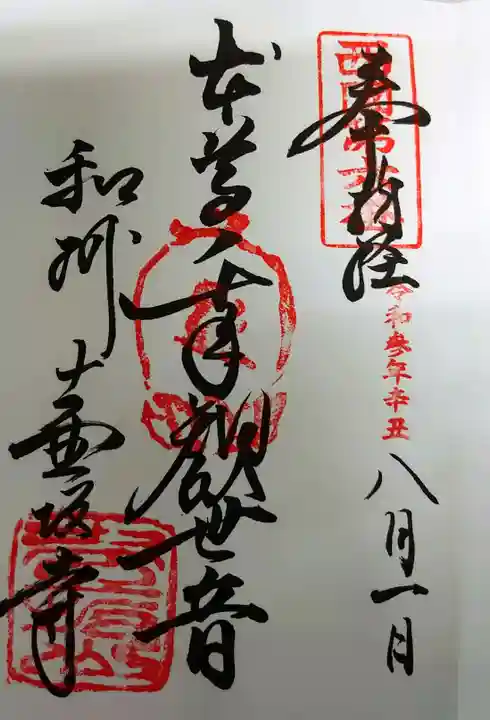 奉拝経
西国第六番
令和参年辛丑
八月一日
本尊千手観世音
和州 壷坂寺